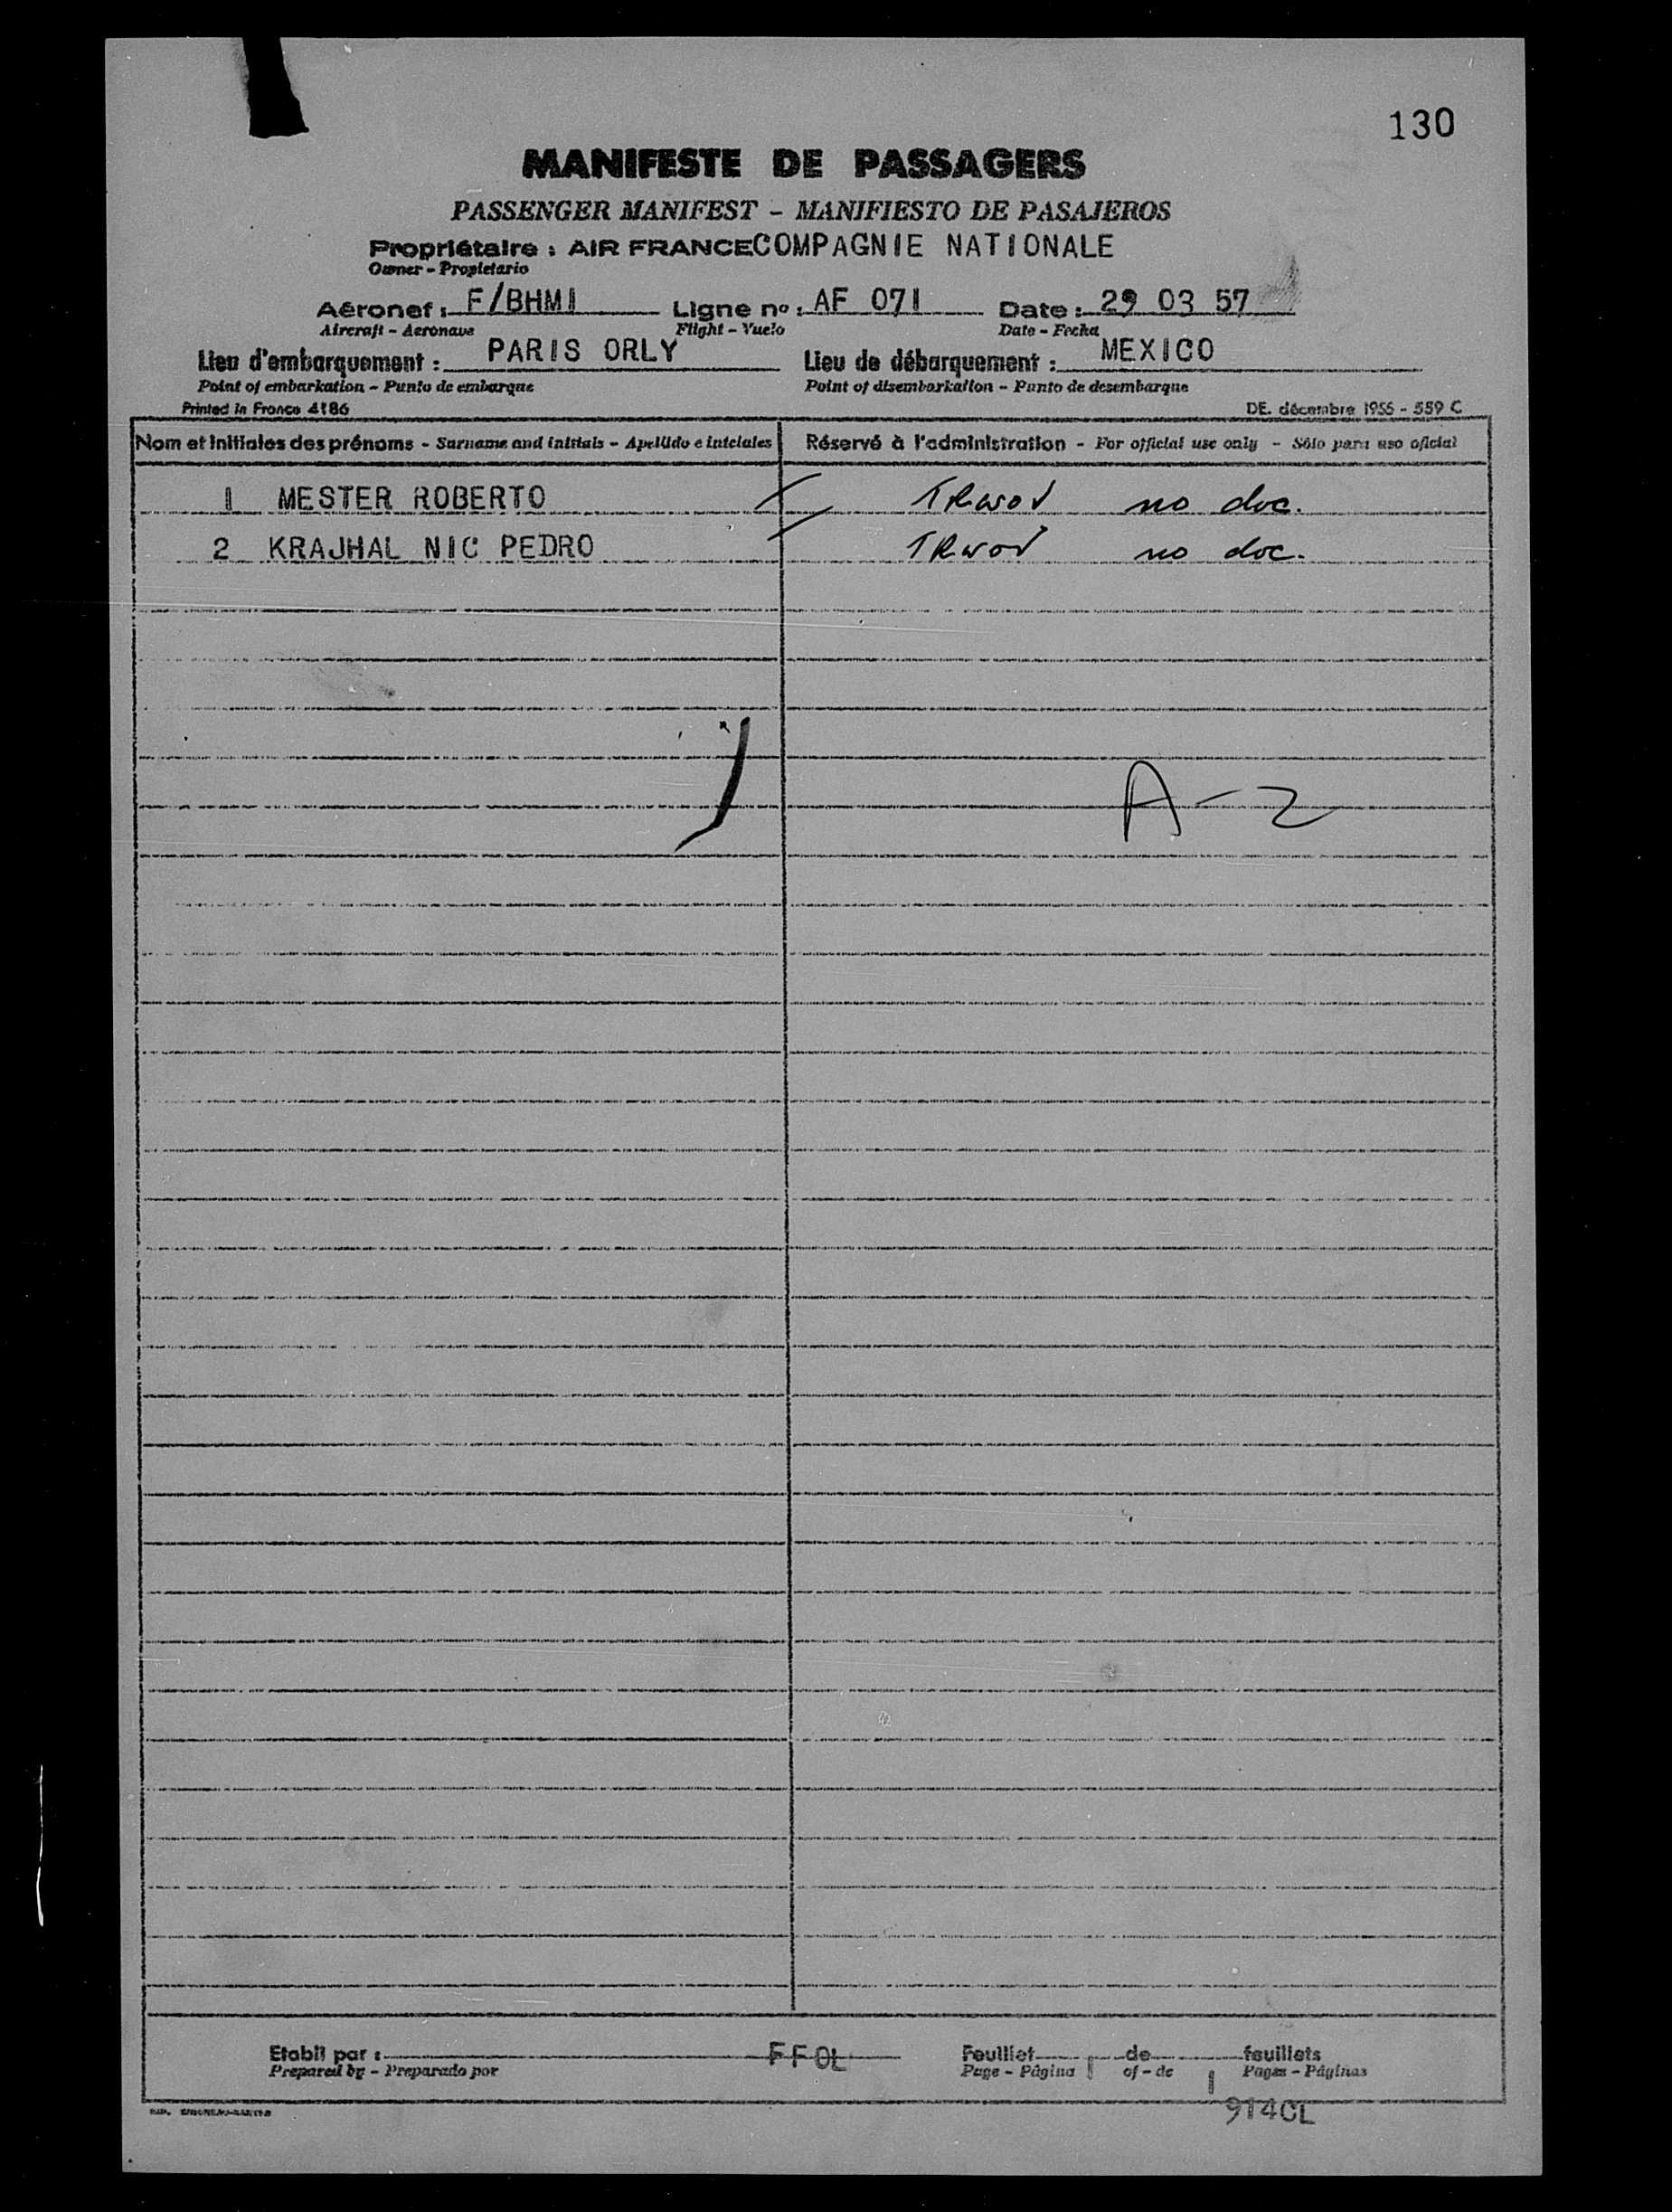 130
MANIFESTE DE PASSAGERS
PASSENGER MANIFEST - MANIFIESTO DE PASAJEROS
Propriétaire : AIR FRANCE COMPAGNIE NATIONALE
Owner - Propietario
Aéronef : F/BHMI Ligne nº : AF 071 Date : 29 03 57
Aircraft - Aeronave Flight - Vuelo Date - Fecha
Lieu d'embarquement : PARIS ORLY Lieu de débarquement : MEXICO
Point of embarkation - Punto de embarque Point of disembarkation - Punto de desembarque
Printed in France 4186 DE. décembre 1955 - 559 C
Nom et initiales des prénoms - Surname and initials - Apellido e iniciales Réservé à l'administration - For official use only - Sólo para uso oficial
1 MESTER ROBERTO TRWOV no doc.
2 KRAJHAL NIC PEDRO TRWOV no doc.
A-2
Etabli par : FFOL Feuillet 1 de 1 feuillets
Prepared by - Preparado por Page - Página of - de Pages - Páginas
914CL